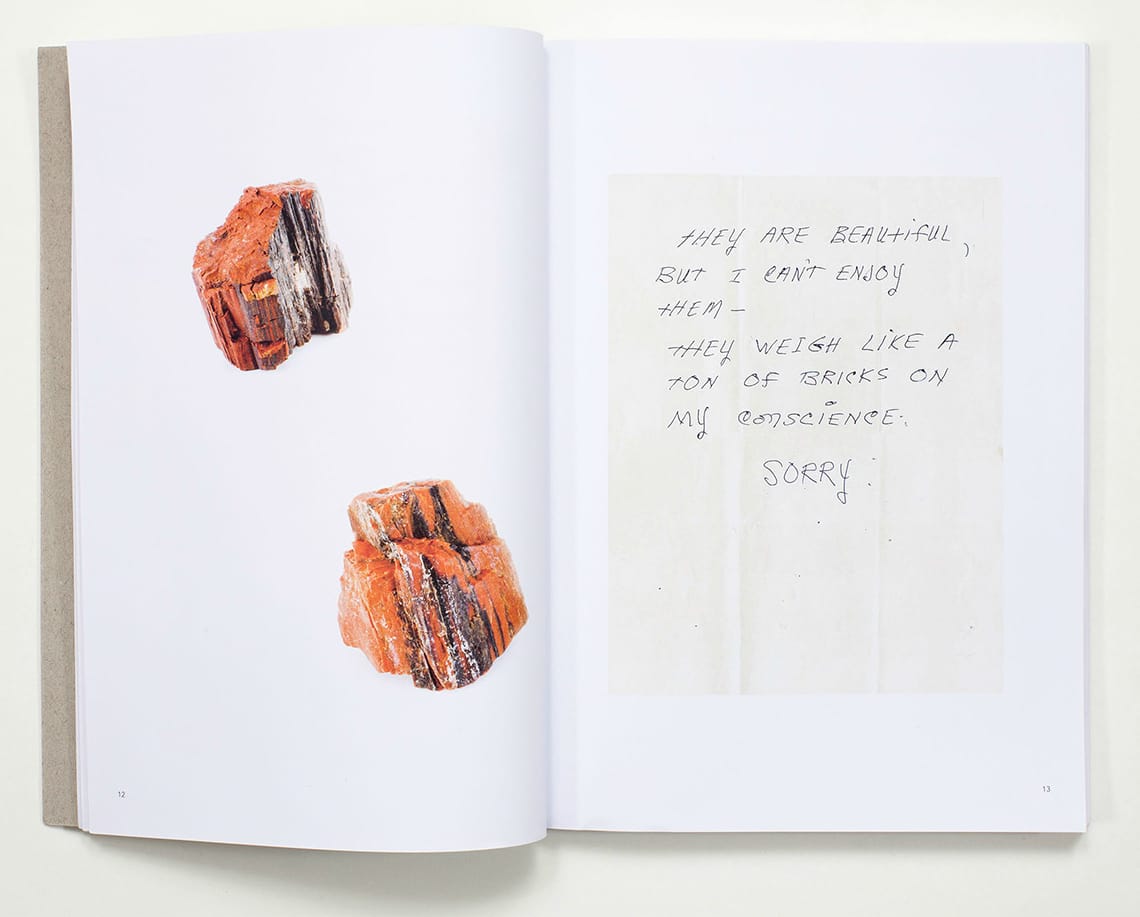 THEY ARE BEAUTIFUL,
BUT I CAN'T ENJOY
THEM –
THEY WEIGH LIKE A
TON OF BRICKS ON
MY CONSCIENCE.
SORRY.
12
13